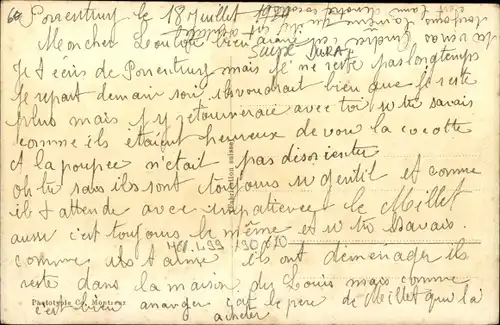 Porrentruy le 18 Juillet
Mon cher Loulou bien aimé
SUISSE JURA
Je t écris de Porrentruy mais je ne reste pas longtemps
Je repart demain soir ils voudrait bien que je reste
plus mais j'y retournerais avec toi si tu savais
comme ils étaient heureux de voir la cocotte
et la poupée n'était pas désorientée
oh tu sais ils sont toujours si gentil et comme
il t attende avec impatience le Millet
aussi c'est toujours le même et si tu savais
comme ils t aime ils ont déménager ils
reste dans la maison des Louis mais comme
c'est bien arranger car le père de Millet qui l'a
acheter
Fabrication suisse
Phototypie Co., Montreux